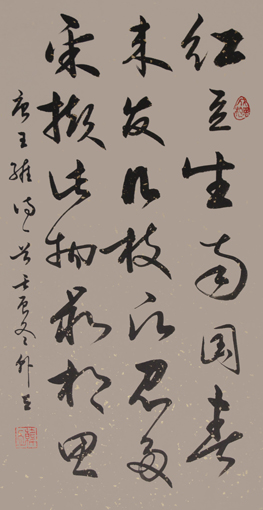 红豆生南国春
来发几枝愿君多
采撷此物最相思
唐王维诗一首壬辰冬